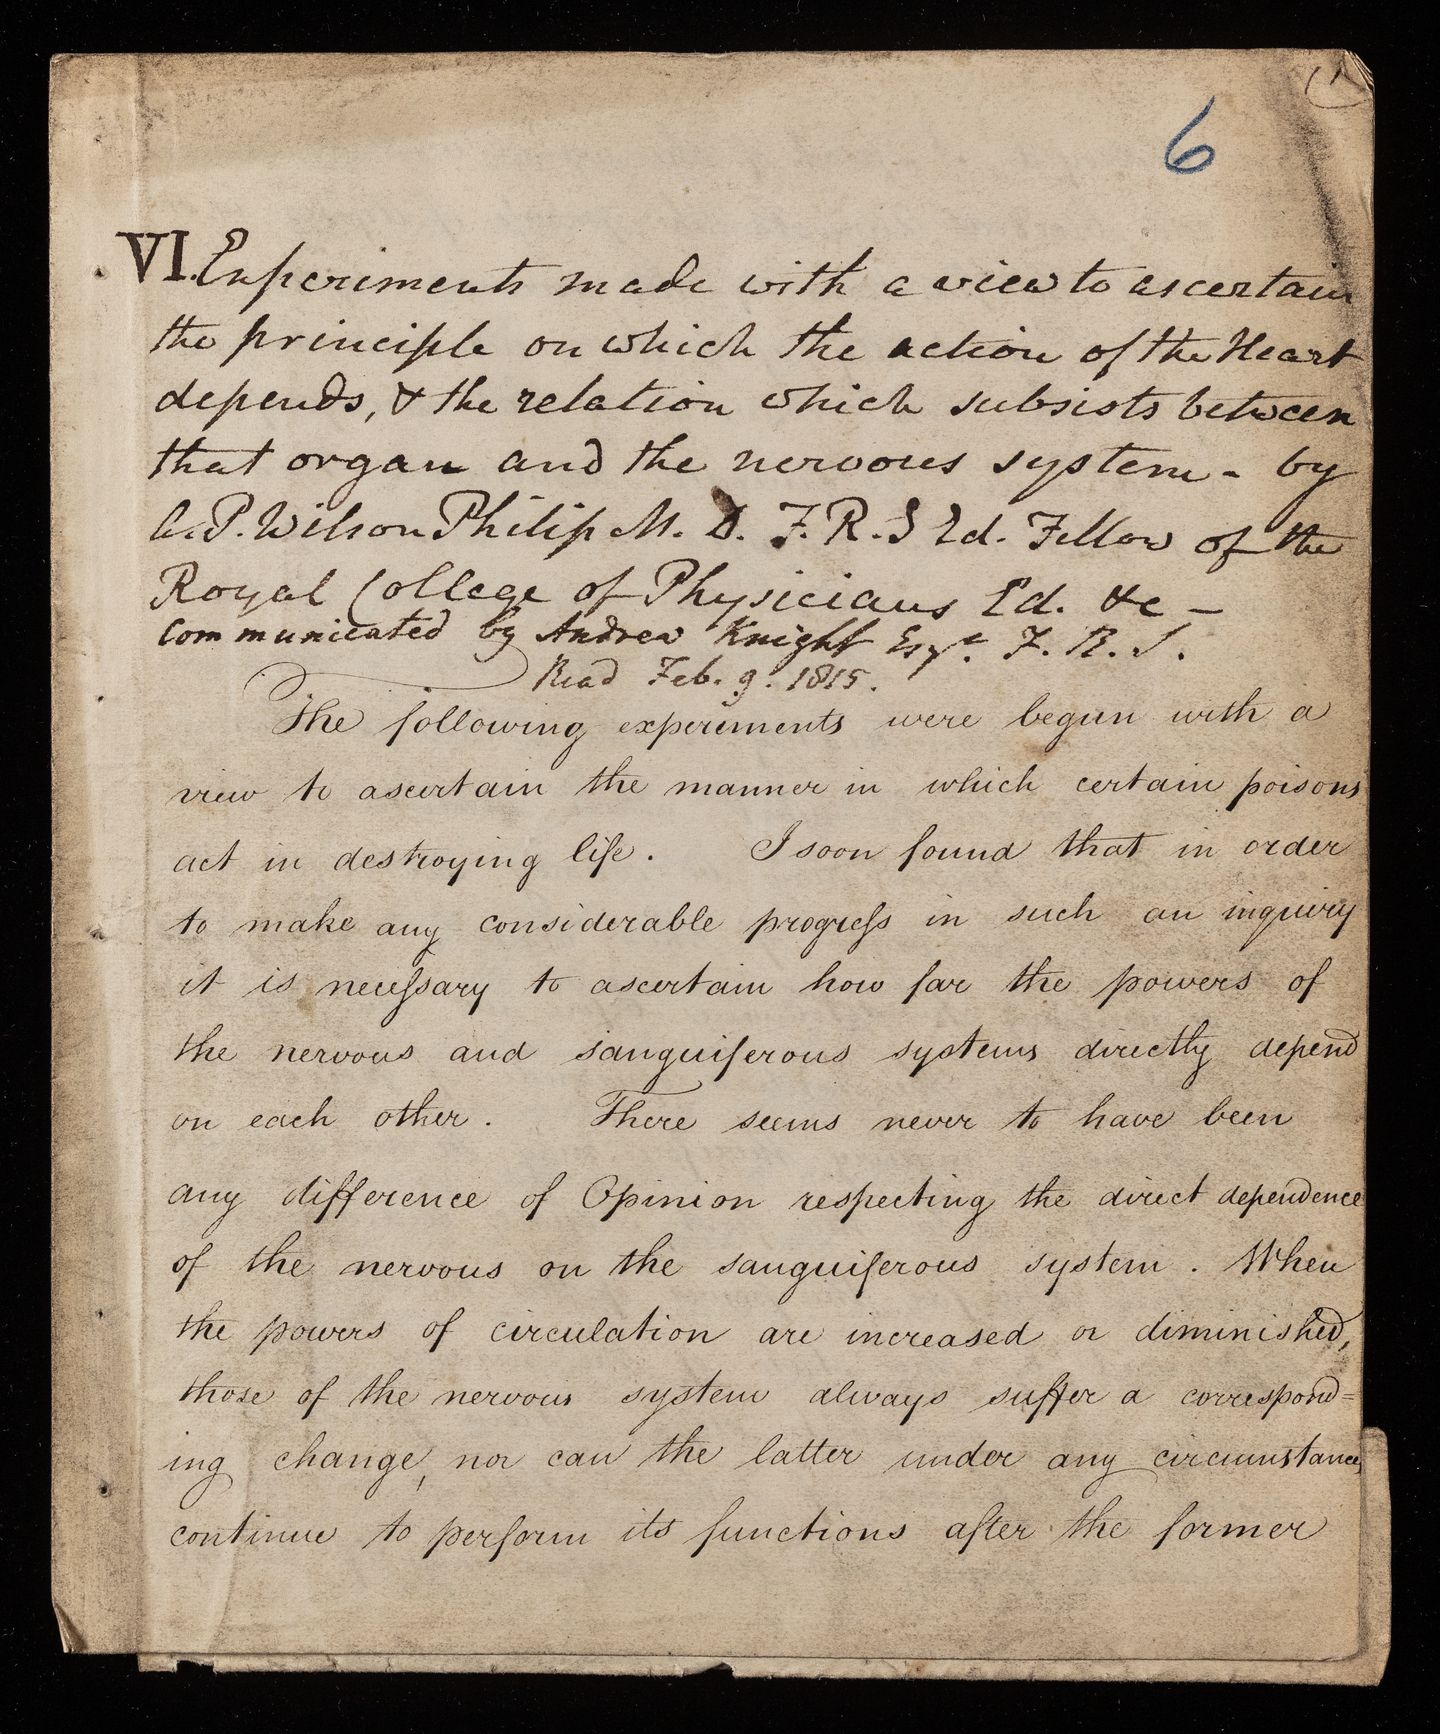 6
VI. Experiments made with a view to ascertain
the principle on which the action of the Heart
depends, & the relation which subsists between
that organ and the nervous system - by
A.P. Wilson Philip M. D. F. R. S Ed. Fellow of the
Royal College of Physicians Ed. &c -
Communicated by Andrew Knight Esqr. F. R. S.
Read Feb. 9. 1815.
The following experiments were begun with a
view to ascertain the manner in which certain poisons
act in destroying life. I soon found that in order
to make any considerable progress in such an inquiry
it is necessary to ascertain how far the powers of
the nervous and sanguiferous systems directly depend
on each other. There seems never to have been
any difference of Opinion respecting the direct dependence
of the nervous on the sanguiferous system. When
the powers of circulation are increased or diminished,
those of the nervous system always suffer a correspond=
ing change, nor can the latter under any circumstances
continue to perform its functions after the former